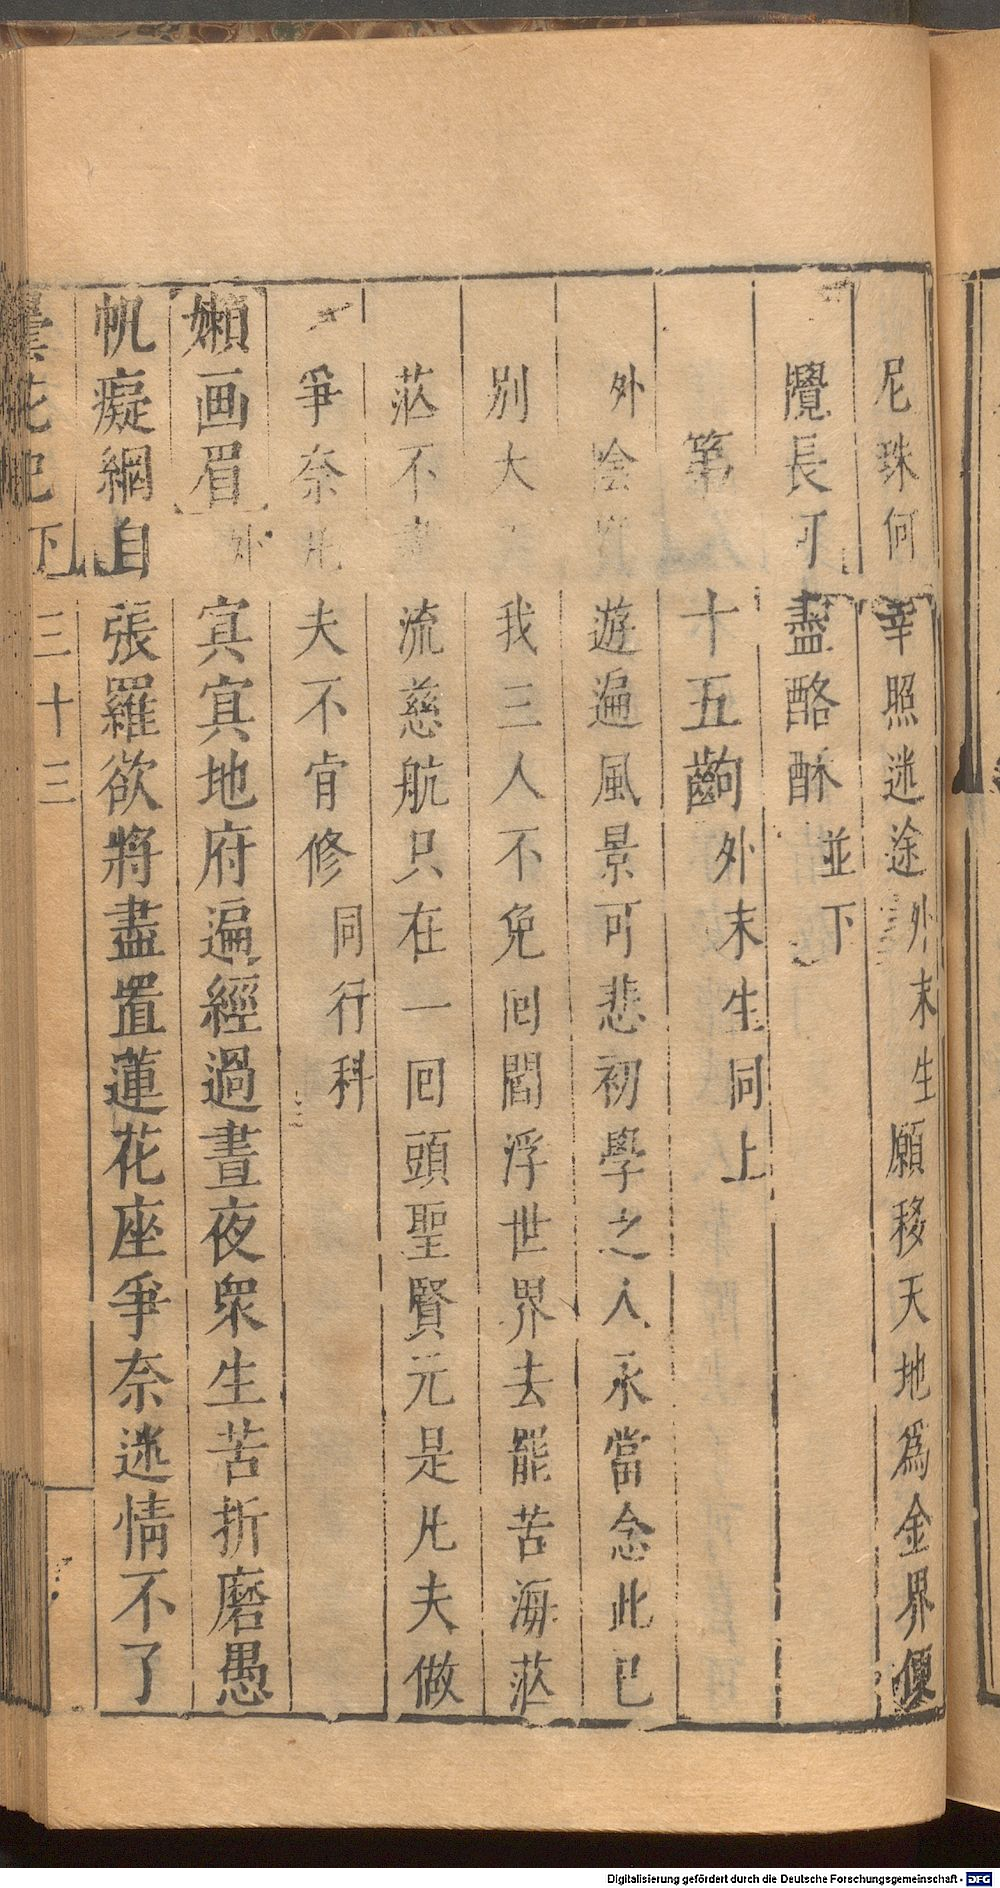 尼珠何幸照迷途外末生願移天地為金界便
攪長可盡酩酥並下
第十五齣外末生同上
外陰遊遍風景可悲初學之人永當念此已
別大我三人不免回閻浮世界去罷苦海茫
茫不流慈航只在一回頭聖賢元是凡夫做
爭奈凡夫不肯修同行科
懶画眉外冥冥地府遍經過晝夜眾生苦折磨愚
帆癡網自張羅欲將盡置蓮花座爭奈迷情不了
曇花記下三十三
Digitalisierung gefördert durch die Deutsche Forschungsgemeinschaft - DFG